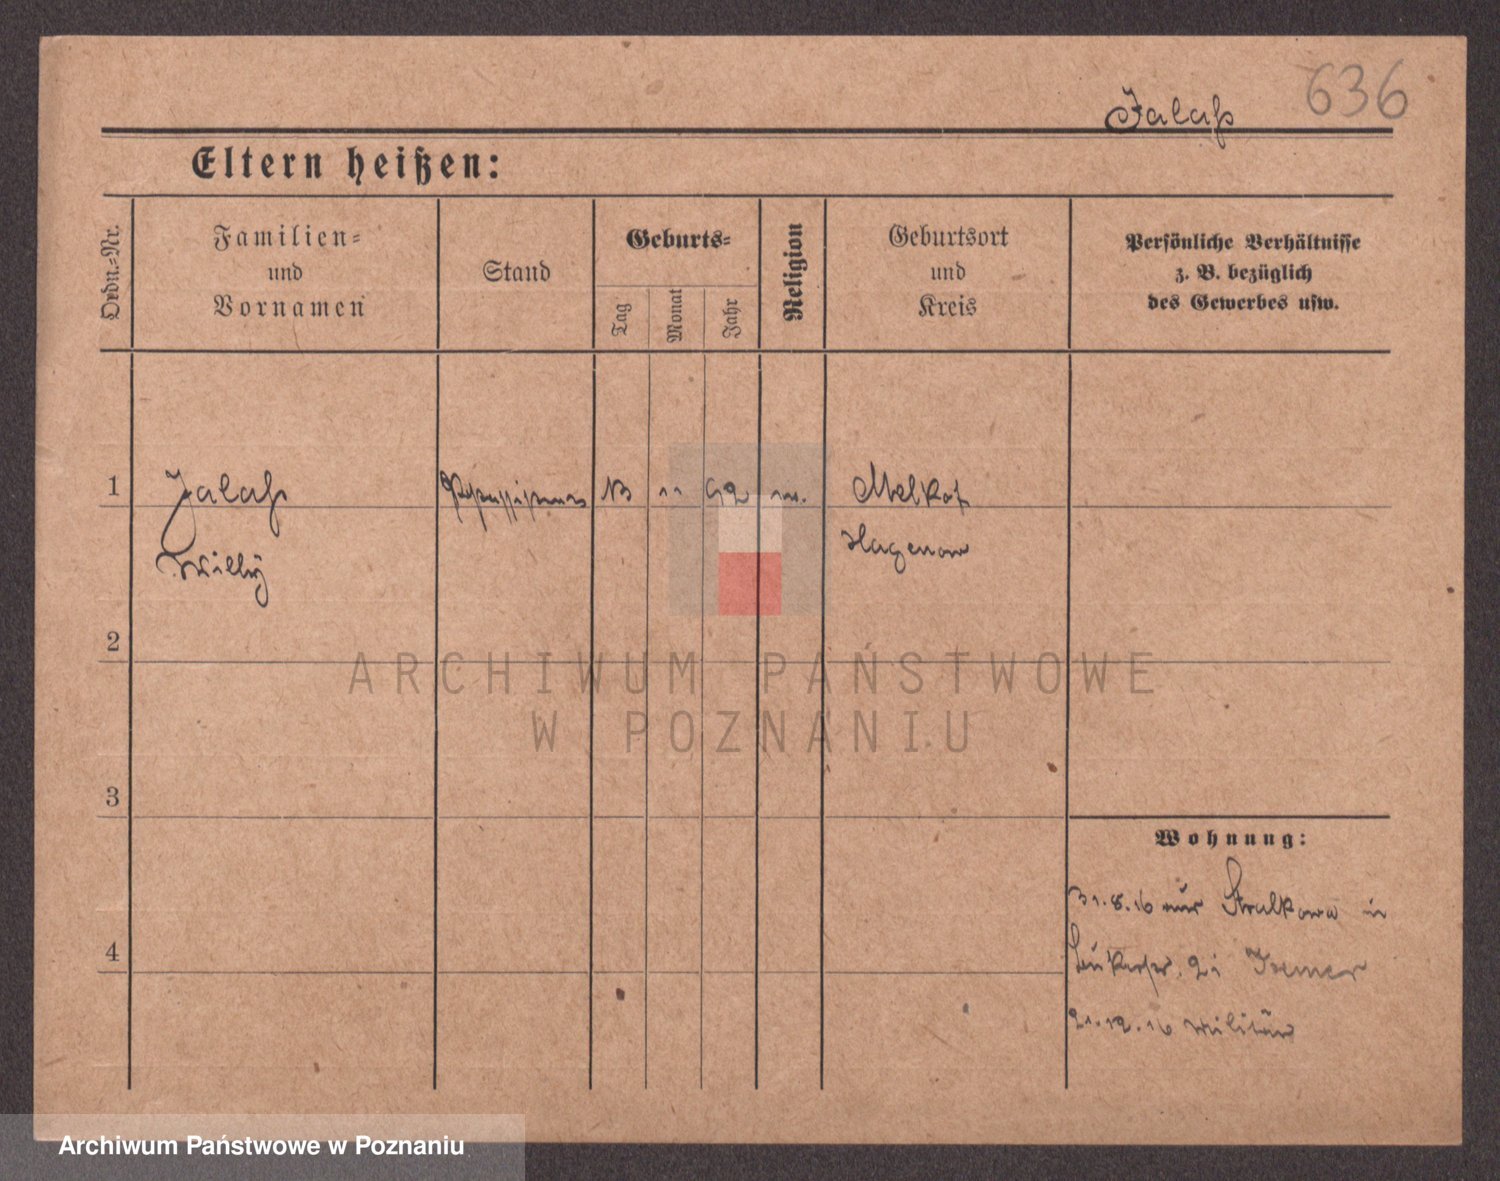 636
Jalaß
Eltern heißen:
Ordn.-Nr.
Familien-
und
Vornamen
Stand
Geburts-
Tag
Monat
Jahr
Religion
Geburtsort
und
Kreis
Persönliche Verhältnisse
z. B. bezüglich
des Gewerbes usw.
1
Jalaß
Willy
13
11
92
Melkof
Hagenow
2
3
4
Wohnung:
31.8.16 aus Stralkowo in
21 Kremer
21.12.16 Militär
ARCHIWUM PAŃSTWOWE
W POZNANIU
Archiwum Państwowe w Poznaniu